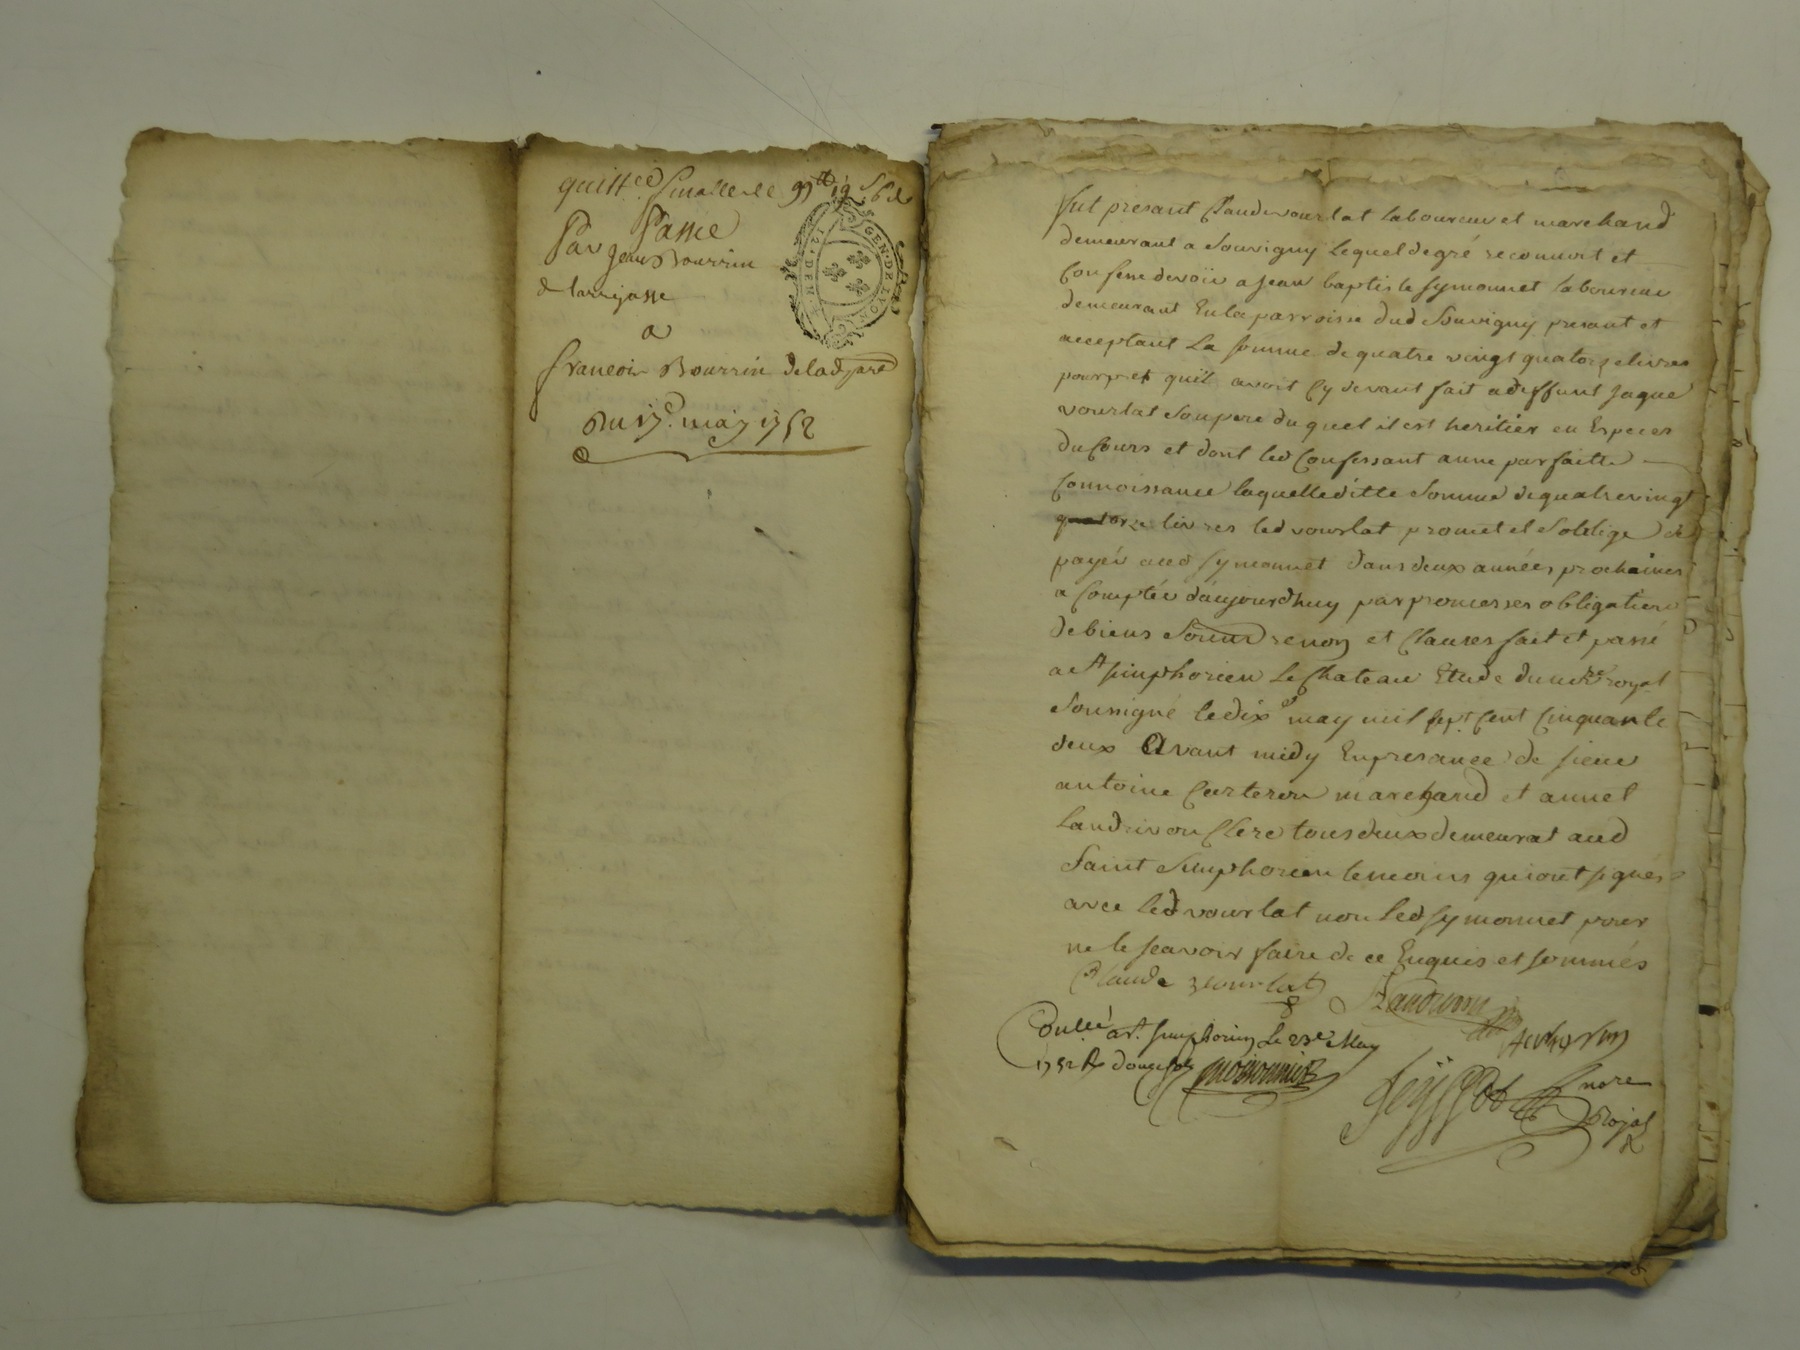 quitt.ce finalle de 99lt 19s 6d
Passée
Par Jean Bourrin
de larajasse
a
francois Bourrin
Du 17e. may 1752
GEN. DE LYON
fut présant Claude vourlat laboureur et marchand
demeurant a Souvigny lequel de gré reconnoit et
Confesse devoir a jean baptiste symonnet laboureur
demeurant En la parroisse dud Souvigny présant et
acceptant La somme de quatre vingt quatorze livres
pour pret quil avoit Cy devant fait a deffunt jaque
vourlat Son pere du quel il est heritier en Especes
du Cours et dont led Confessant a une parfaitte
Connoissance laquelle ditte Somme de quatre vingt
quatorze livres led vourlat promet et Soblige de
payér aud symonnet dans deux années prochaines
a Comptér daujourdhuy par promesses obligation
de biens Soum renon et Clauses fait et passé
a st simphorien le Chateau Etude du nore royal
Soussigné le dix may mil sept Cent Cinquante
deux avant midy En presance de sieur
antoine Carteron marchand et annet
Landrivon Clerc tous deux demeurat aud
Saint Simphorien temoins qui ont signés
avec led vourlat non led symonnet pour
ne le scavoir faire de ce Enquis et sommés
Claude vourlat
Conllé a st. simphorien Le 23e May
1752 R douze sols
nore
Royal